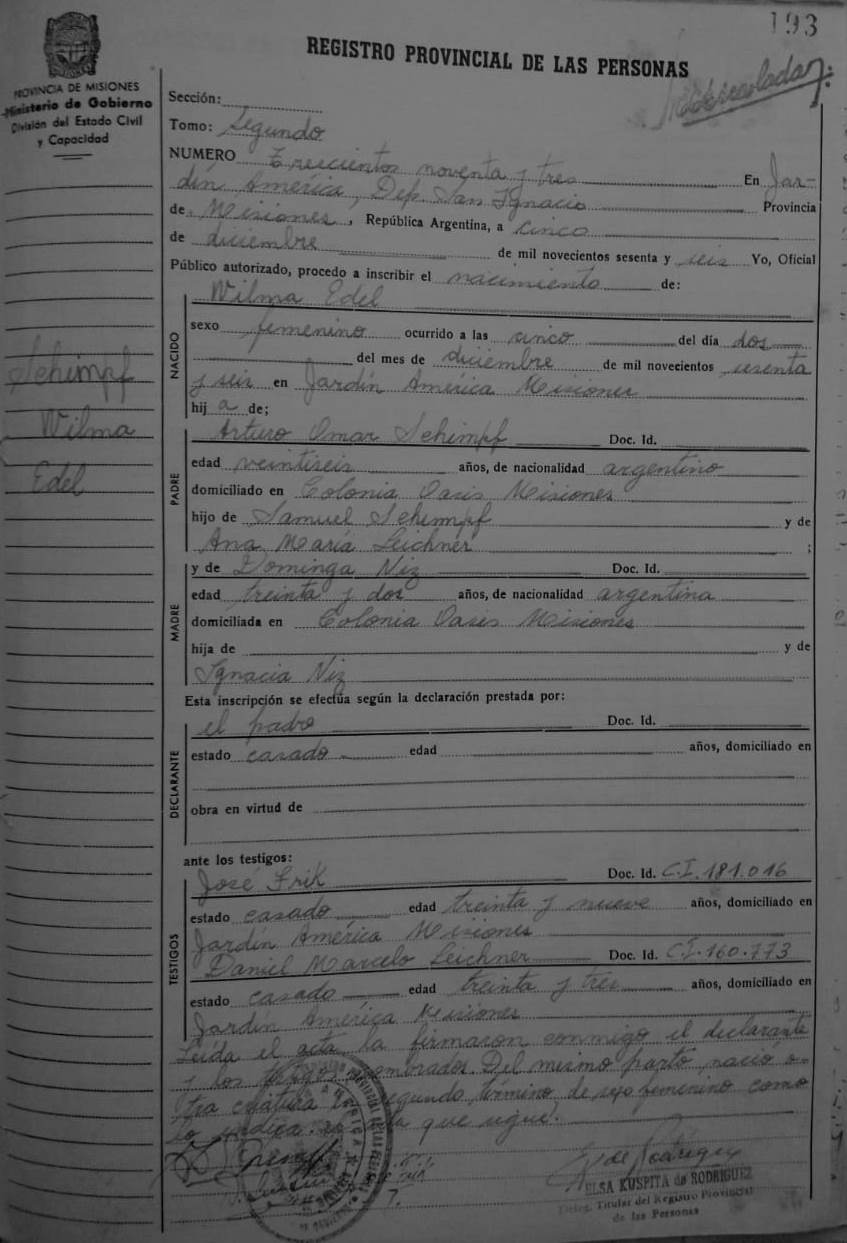 193
REGISTRO PROVINCIAL DE LAS PERSONAS
PROVINCIA DE MISIONES
Ministerio de Gobierno
División del Estado Civil
y Capacidad
Sección:
Tomo: Segundo
NUMERO Trescientos noventa y tres En Jar-
dín América, Dep. San Ignacio Provincia
de Misiones, República Argentina, a cinco
de diciembre de mil novecientos sesenta y seis Yo, Oficial
Público autorizado, procedo a inscribir el nacimiento de:
Wilma Edel
NACIDO
sexo femenino ocurrido a las cinco del día dos
del mes de diciembre de mil novecientos sesenta
y seis en Jardín América Misiones
hija de;
Schimpf
Wilma
Edel
PADRE
Arturo Omar Schimpf Doc. Id.
edad veintiseis años, de nacionalidad argentino
domiciliado en Colonia Oasis Misiones
hijo de Samuel Schimpf y de
Ana María Leichner ;
MADRE
y de Dominga Niz Doc. Id.
edad treinta y dos años, de nacionalidad argentina
domiciliada en Colonia Oasis Misiones
hija de y de
Ignacia Niz
Esta inscripción se efectúa según la declaración prestada por:
DECLARANTE
el padre Doc. Id.
estado casado edad años, domiciliado en
obra en virtud de
ante los testigos:
TESTIGOS
José Frik Doc. Id. C.I. 181.016
estado casado edad treinta y nueve años, domiciliado en
Jardín América Misiones
Daniel Marcelo Leichner Doc. Id. C.I. 160.773
estado casado edad treinta y tres años, domiciliado en
Jardín América Misiones
Leída el acta la firmaron conmigo el declarante
y los testigos nombrados. Del mismo parto nació o-
tra criatura en segundo término de sexo femenino como
lo indica el acta que sigue.
ELSA KUSPITA de RODRIGUEZ
Deleg. Titular del Registro Provincial
de las Personas